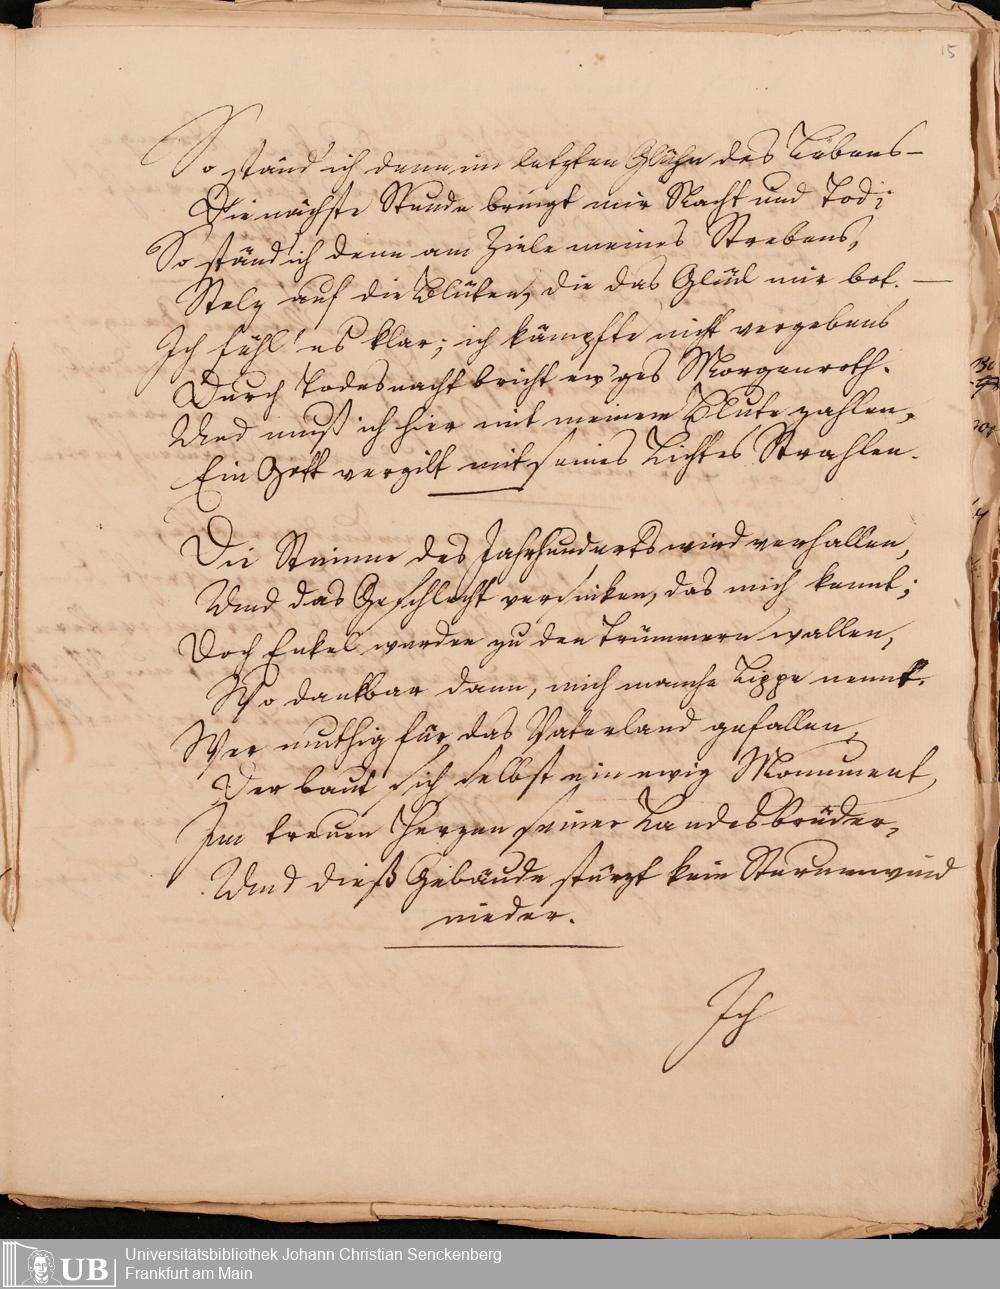 15
So ständ' ich denn im letzten Glühn des Lebens –
Die nächste Stunde bringt mir Nacht und Tod;
So ständ' ich denn am Ziele meines Strebens,
Stolz auf die Blüten, die das Glück mir bot. –
Ich fühl' es klar; ich kämpfte nicht vergebens
Durch Todesnacht bricht ew'ges Morgenroth.
Und muß ich hier mit meinem Blute zahlen,
Ein Gott vergilt mit seines Lichtes Strahlen.
Die Stimme des Jahrhunderts wird verhallen,
Und das Geschlecht versinken, das mich kennt;
Doch Enkel werden zu den Trümmern wallen,
Wo dankbar dann, mich manche Lippe nennt.
Wer muthig für das Vaterland gefallen,
Der baut sich selbst ein ewig Monument,
Im treuen Herzen seiner Landesbrüder,
Und dieß Gebäude stürzt kein Sturmwind
nieder.
UB
Universitätsbibliothek Johann Christian Senckenberg
Frankfurt am Main